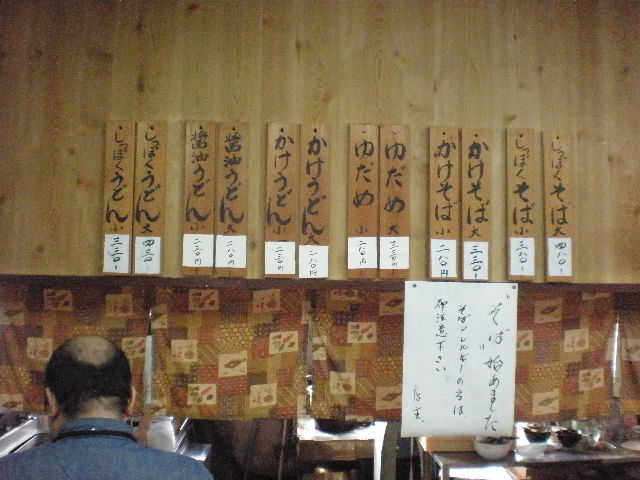 しっぽくそば 大
四八〇-
しっぽくそば 小
三八〇-
かけそば 大
三三〇-
かけそば 小
二八〇円
ゆだめ 大
ゆだめ 小
かけうどん 大
二八〇円
かけうどん 小
二三〇円
醤油うどん 大
二八〇円
醤油うどん 小
しっぽくうどん 大
四三〇-
しっぽくうどん 小
三三〇-
"そば" 始めました
そばアレルギーの方は
御注意下さい
店主